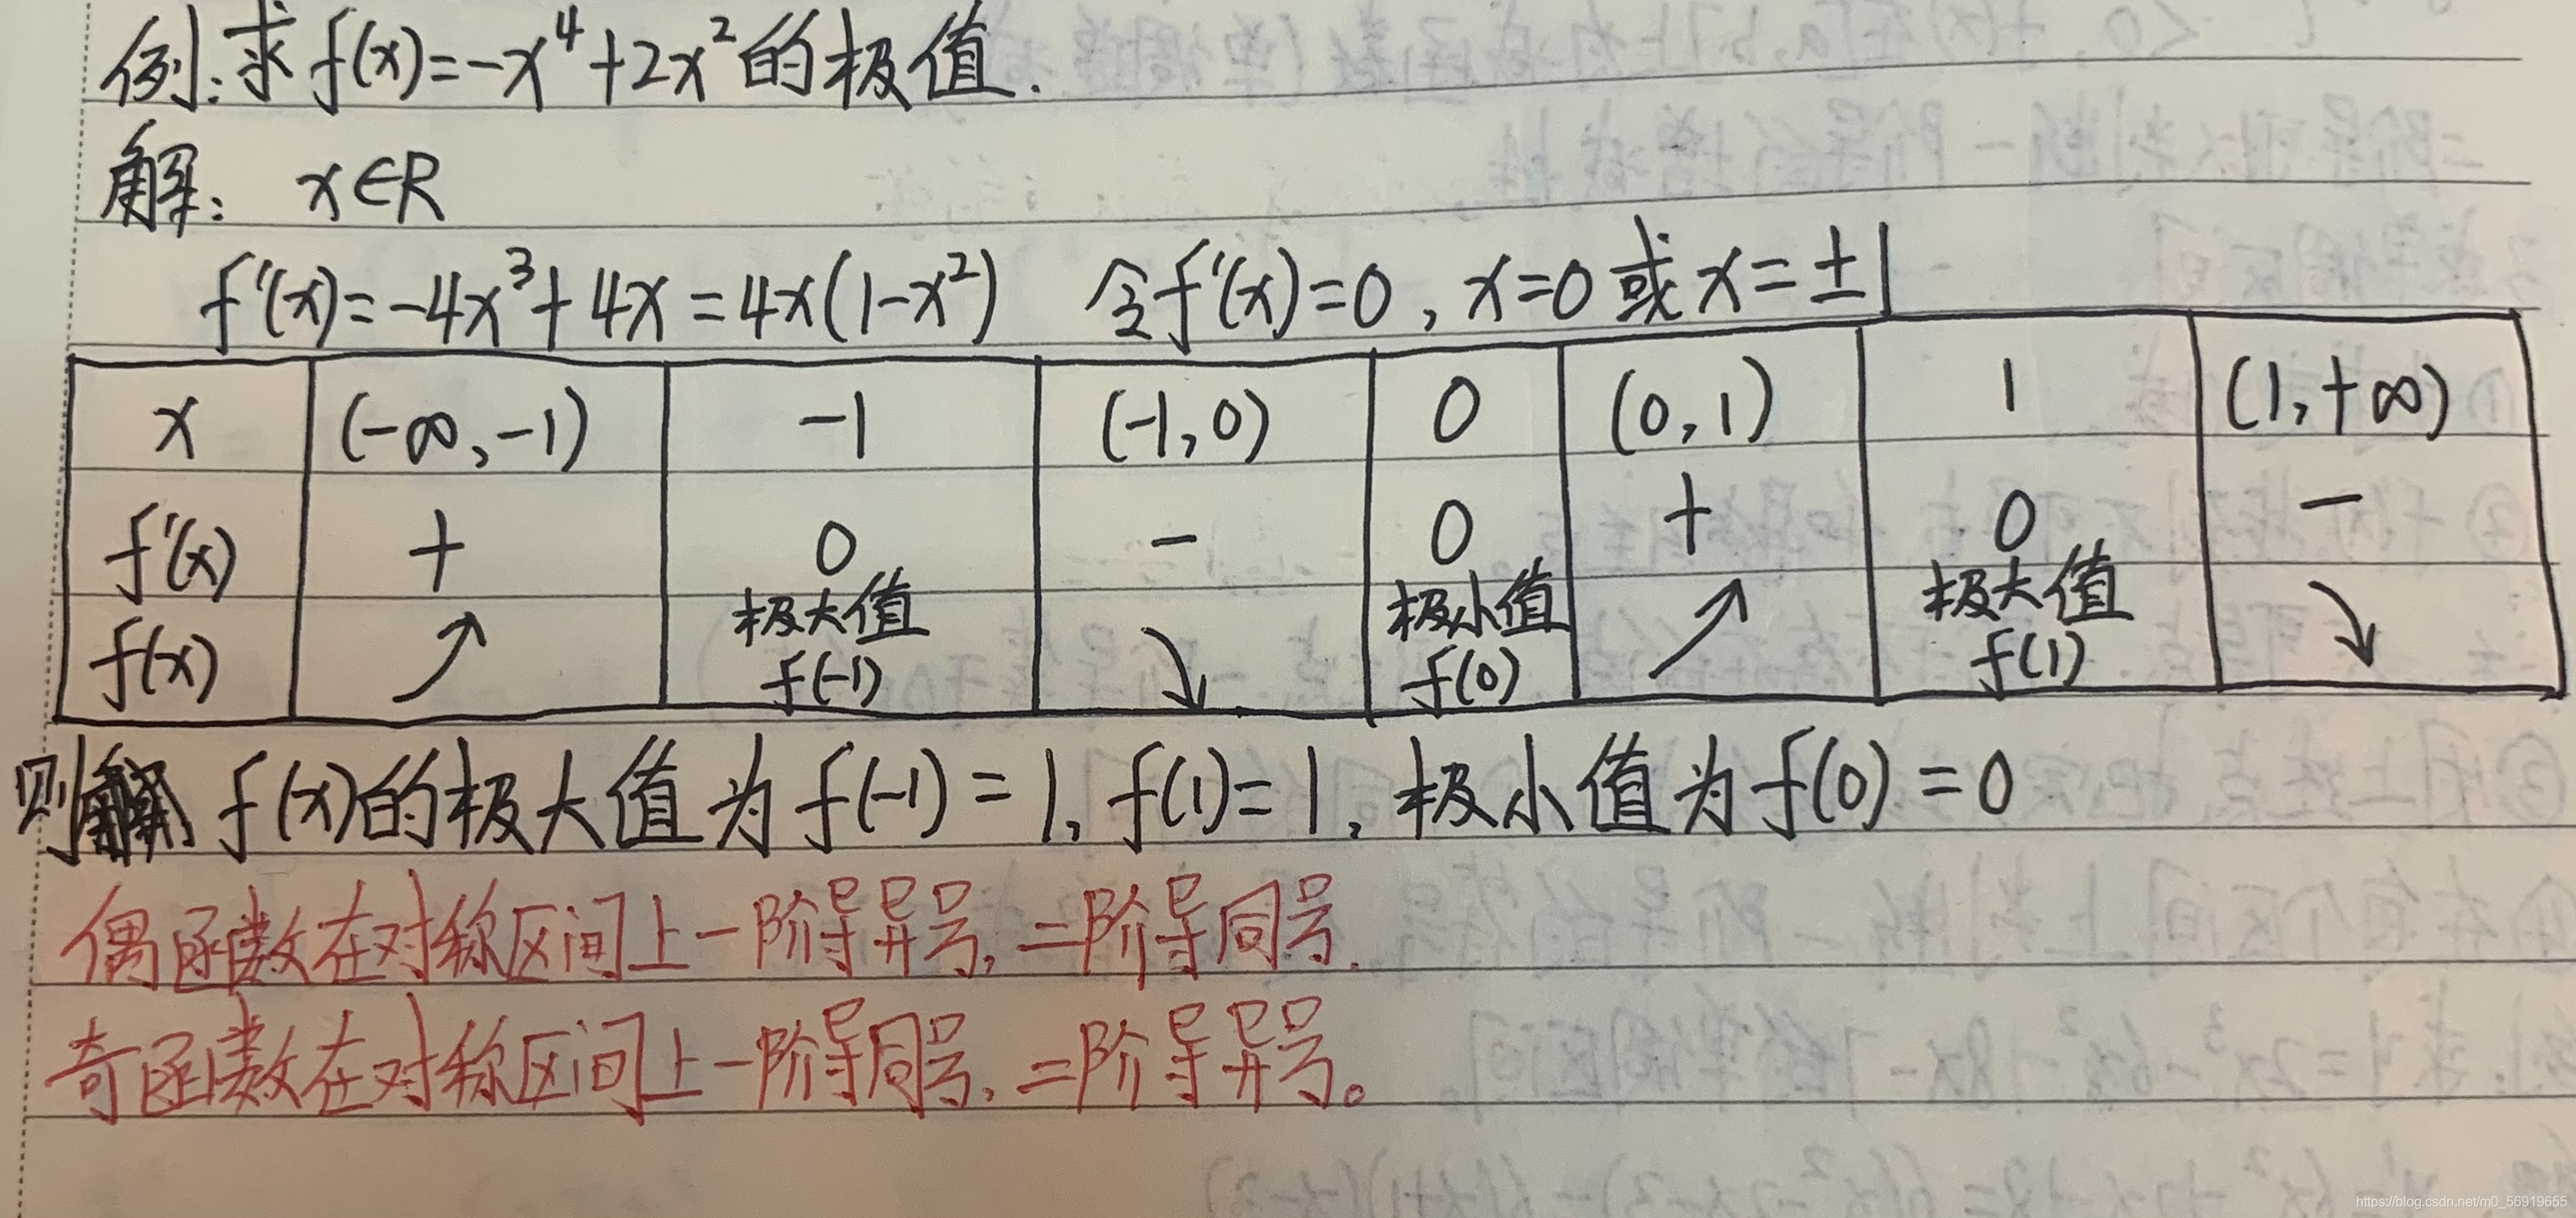 例:求f(x)=-x⁴+2x²的极值.
解: x∈R
f'(x)=-4x³+4x=4x(1-x²) 令f'(x)=0,x=0或x=±1
x (-∞,-1) -1 (-1,0) 0 (0,1) 1 (1,+∞)
f'(x) + 0 - 0 + 0 -
f(x) ↗ 极大值 f(-1) ↘ 极小值 f(0) ↗ 极大值 f(1) ↘
则 f(x)的极大值为f(-1)=1,f(1)=1,极小值为f(0)=0
偶函数在对称区间上一阶导异号,二阶导同号.
奇函数在对称区间上一阶导同号,二阶导异号。
https://blog.csdn.net/m0_56919655